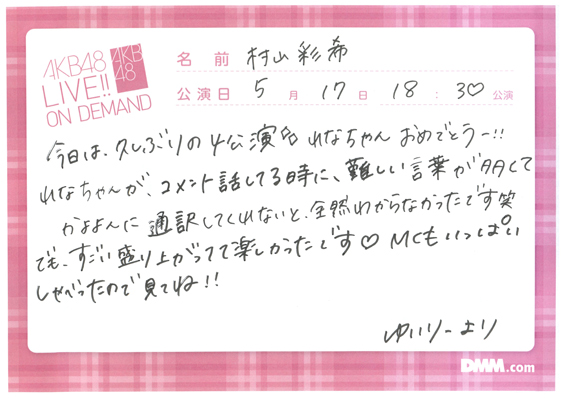 AKB48
LIVE!!
ON DEMAND
AKB
48
名 前 村山彩希
公演日 5 月 17 日 18 : 30♡ 公演
今日は、久しぶりの4公演 れなちゃん おめでとうー!!
れなちゃんが、コメント話してる時に、難しい言葉が多くて
かよよんに 通訳してくれないと、全然わからなかったです笑
でも、すごい盛り上がってて楽しかったです♡ MCもいっぱい
しゃべったので見てね!!
ゆいりーより
DMM.com